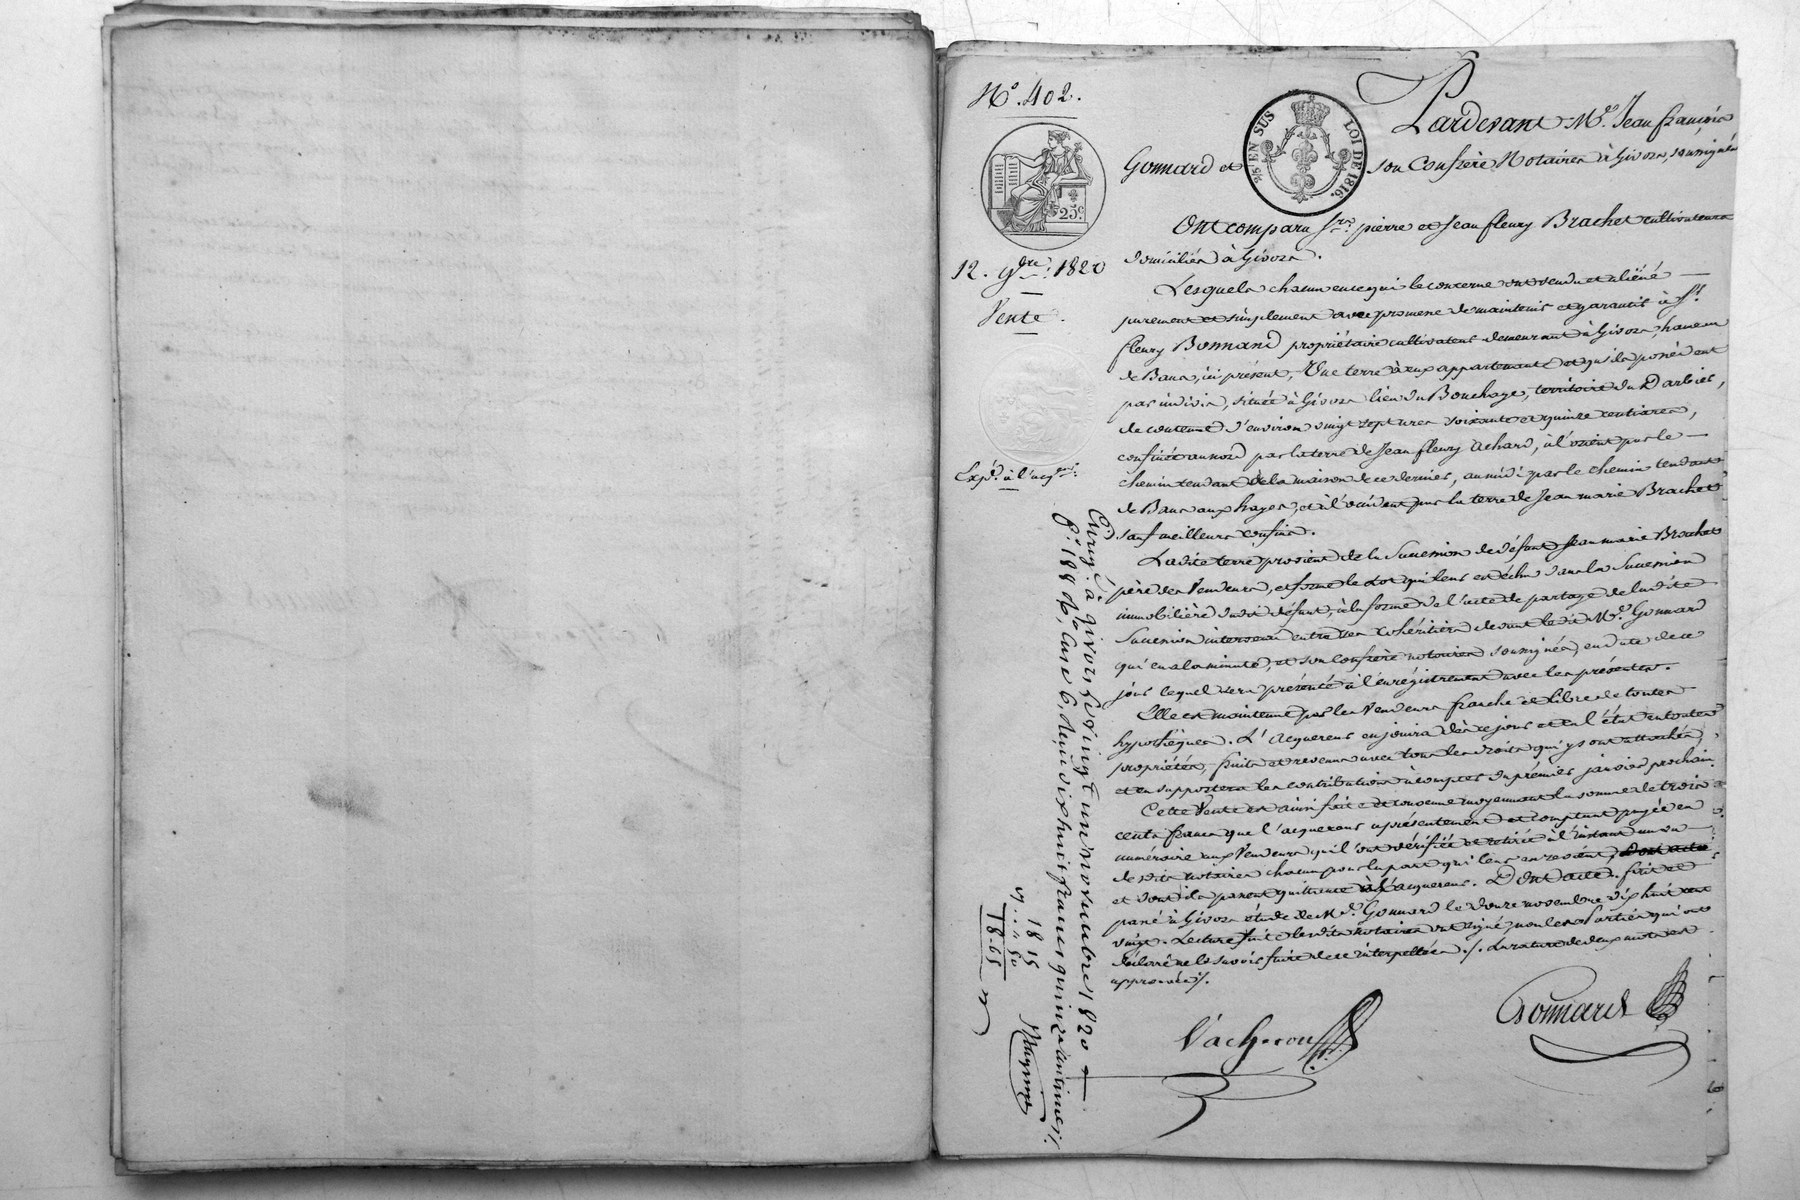 N.º 402.
12. 9bre 1820
Vente.
Expé. à l'acqr.
25c
25c EN SUS
LOI DE 1816.
Pardevant Me. Jean françois
Gonnard et son Confrère Notaires à Givors, soussignés
Ont comparu Srs. pierre et Jean fleury Brachet cultivateurs
domiciliés à Givors.
Lesquels chacun en ce qui le concerne ont vendu et aliéné
purement et simplement avec promesse de maintenir et garantir à Sr.
fleury Bonnand propriétaire cultivateur demeurant à Givors, hameau
de Bans, ici présent, Une terre à eux appartenant et qu'ils possèdent
par indivis, située à Givors lieu du Bouchage, territoire du Darbier,
de contenue d'environ vingt sept ares soixante et quinze centiares,
confinée au nord par la terre de Jean fleury Achard, à l'orient par le
chemin tendant de la maison de ce dernier, au midi par le chemin tendant
de Bans aux hayes, et à l'occident par la terre de Jean marie Brachet
sauf meilleurs confins.
La dite terre provient de la Succession de défunt Jean marie Brachet
père des Vendeurs, et forme le Lot qui leur est échu dans la Succession
immobilière dudit défunt, à la forme de l'acte de partage de ladite
Succession intervenu entre ses cohéritiers devant le dit Me. Gonnard
qui en a la minute, et son confrère notaires soussignés, en date de ce
jour lequel sera présenté à l'enrégistrement avec les présentes.
Elle est maintenue par les Vendeurs franche et libre de toutes
hypothèques. L'Acquereur en jouira dès ce jour et en l'état en toutes
propriétés, fruits et revenus avec tous les droits qui y sont attachés,
et en supportera les contributions à compter du prémier janvier prochain.
Cette Vente est ainsi faite et convenue moyennant la somme de trois
cents francs que l'acquereur a présentement et comptant payée en
numéraire aux Vendeurs qui l'ont vérifiée et retirée à l'instant au vu
de dits notaires chacun pour la part qui leur en revient, Dont acte
et dont ils passent quittance à l'acquereur. Dont acte. fait et
passé à Givors étude de Me. Gonnard le douze novembre dix huit cent
vingt. Lecture faite les dits notaires ont signé non les Parties qui ont
déclaré ne le savoir faire de ce interpellées ./. La rature de deux mots est
approuvée ./.
Vacheron
Gonnard
Enregé. à givors le vingt un novembre 1820
fo. 188 Vo, Case 6, Reçu dix huit francs quinze centimes ./.
18 15
18.65